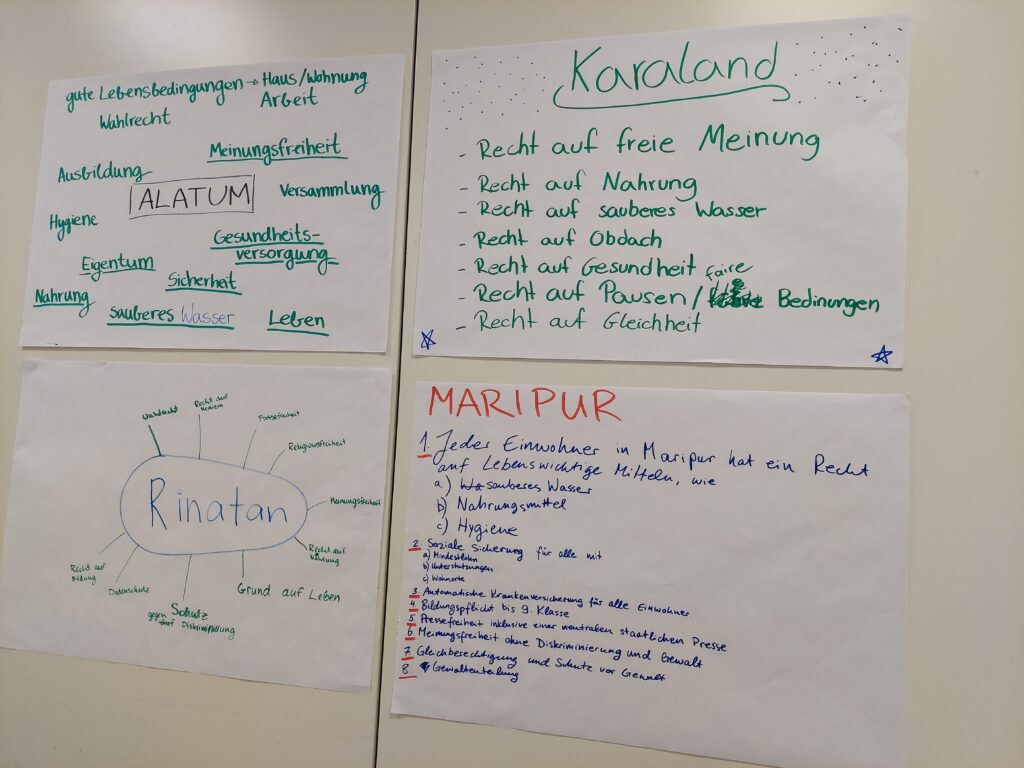 gute Lebensbedingungen → Haus/Wohnung
Arbeit
Wahlrecht
Meinungsfreiheit
Ausbildung
ALATUM
Versammlung
Hygiene
Gesundheits-
versorgung
Eigentum
Sicherheit
Nahrung
sauberes Wasser
Leben
Karaland
- Recht auf freie Meinung
- Recht auf Nahrung
- Recht auf sauberes Wasser
- Recht auf Obdach
- Recht auf Gesundheit
- Recht auf Pausen / faire Bedinungen
- Recht auf Gleichheit
Wahlrecht
Recht auf
Pressefreiheit
Religionsfreiheit
Rinatan
Meinungsfreiheit
Recht auf
Nahrung
Recht auf
Bildung
Datenschutz
Grund auf Leben
Schutz
gegen Diskriminierung
MARIPUR
1. Jedes Einwohner in Maripur hat ein Recht
auf Lebenswichtige Mitteln, wie
a) sauberes Wasser
b) Nahrungsmittel
c) Hygiene
2. Soziale Sicherung für alle mit
a) Mindestlohn
b) Unterstützungen
c) Wohnorte
3. Automatische Krankenversicherung für alle Einwohner.
4. Bildungspflicht bis 9. Klasse
5. Pressefreiheit inklusive einer neutralen staatlichen Presse
6. Meinungsfreiheit ohne Diskriminierung und Gewalt
7. Gleichberechtigung und Schutz vor Gewalt
8. Gewaltenteilung